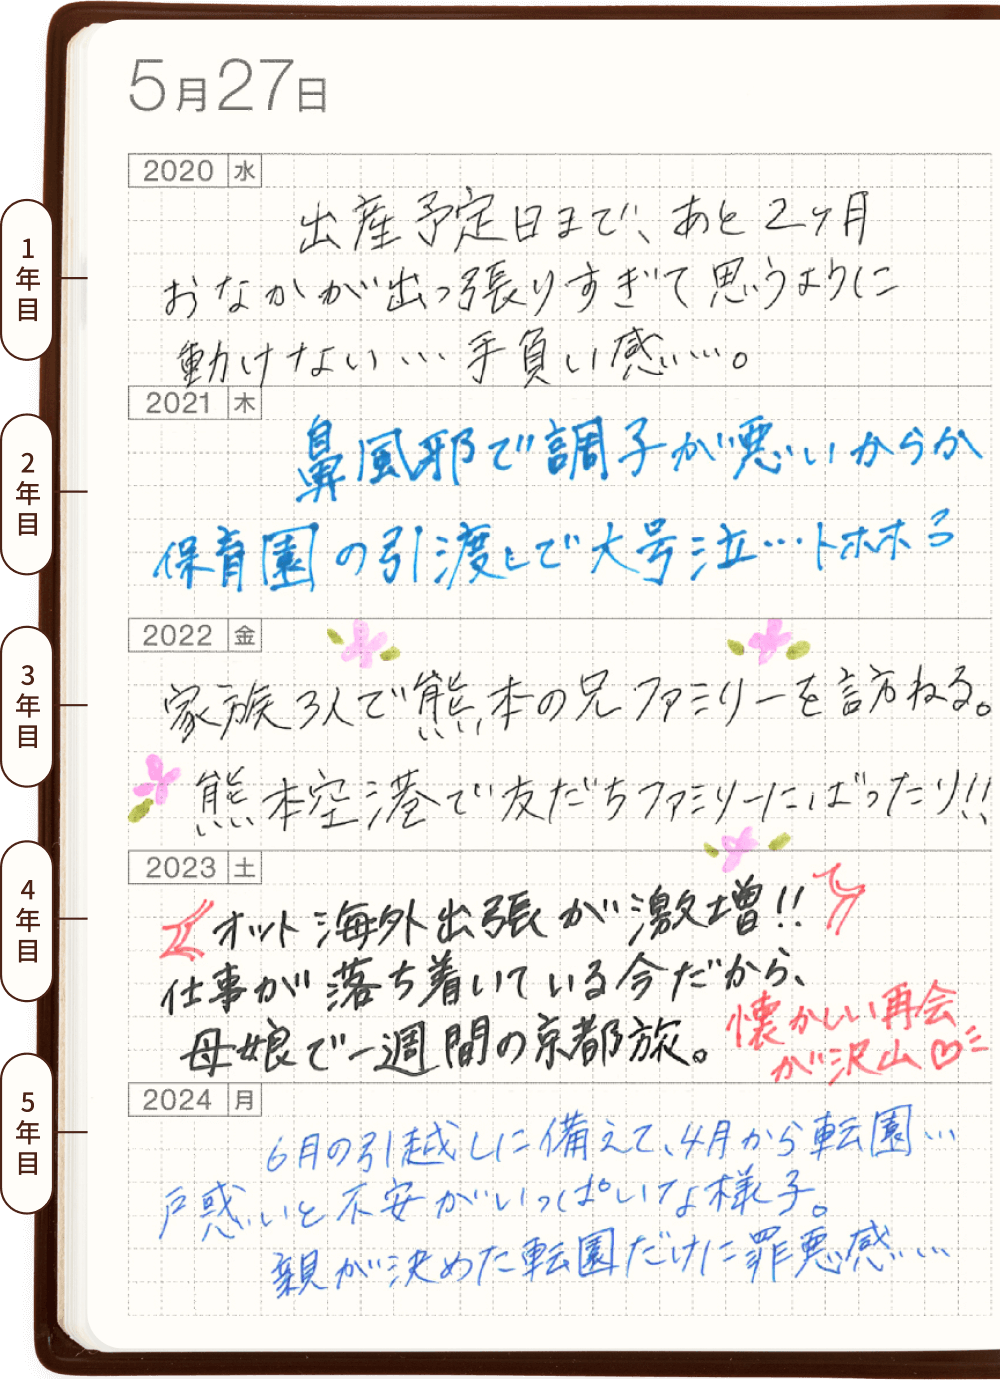 5月27日
1年目
2020 水
出産予定日まで、あと2ヶ月
おなかが出っ張りすぎて思うように
動けない…手負い感……。
2年目
2021 木
鼻風邪で調子が悪いからか
保育園の引渡しで大号泣…トホホ
3年目
2022 金
家族3人で熊本の兄ファミリーを訪ねる。
熊本空港で友だちファミリーにばったり!!
4年目
2023 土
オット海外出張が激増!!
仕事が落ち着いている今だから、
母娘で一週間の京都旅。
懐かしい再会
が沢山♡
5年目
2024 月
6月の引越しに備えて、4月から転園…
戸惑いと不安がいっぱいな様子。
親が決めた転園だけに罪悪感……